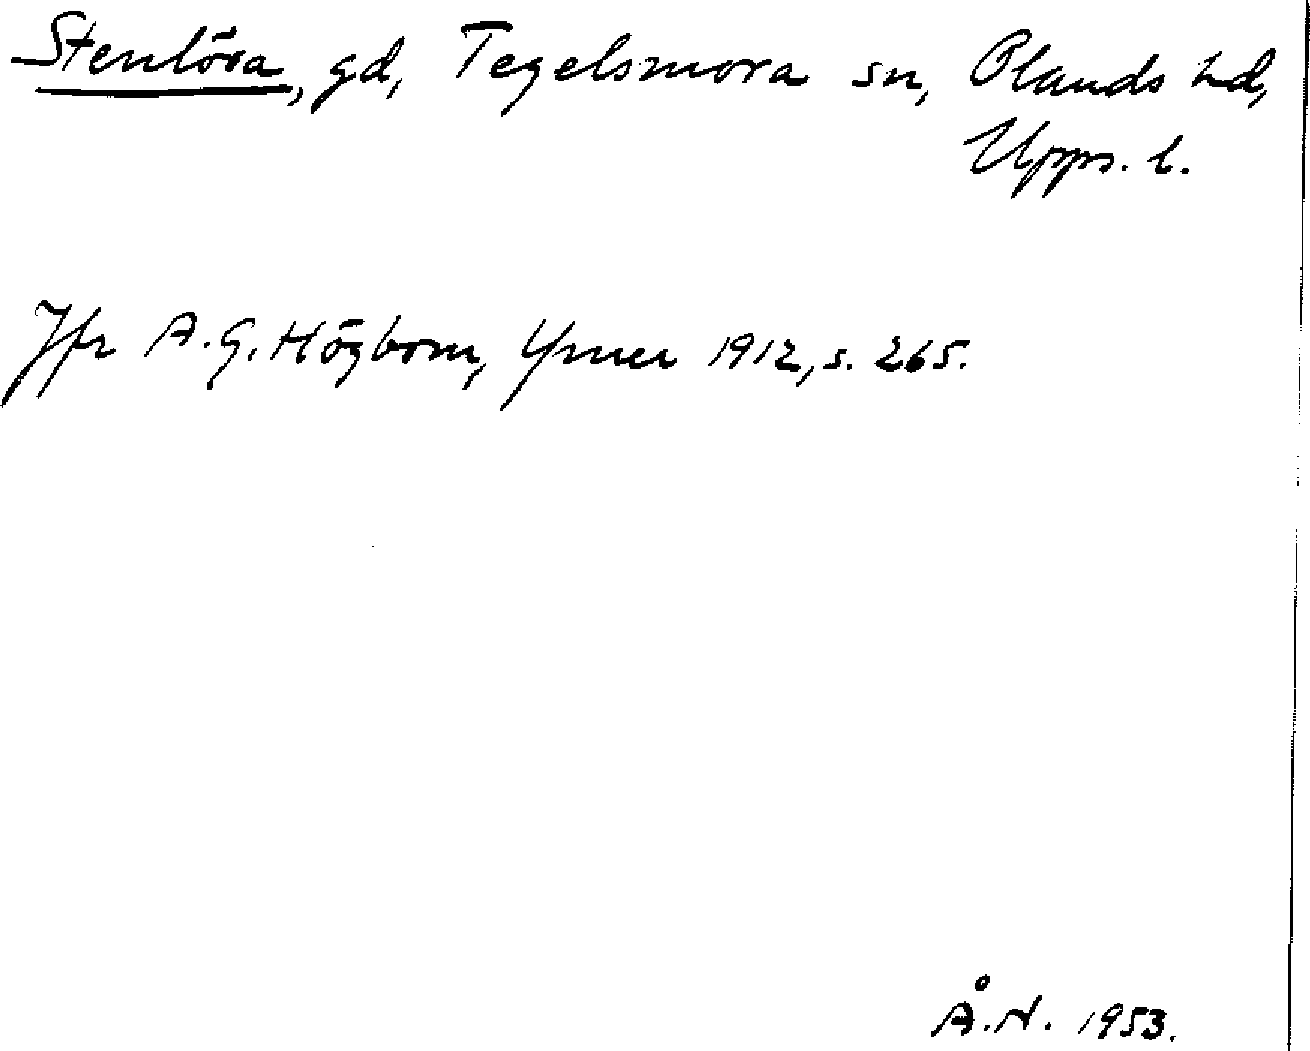 Stenlösa, gd, Tegelsmora sn, Olands hd,
Upps. l.
Jfr A.G. Högbom, Ymer 1912, s. 265.
Å.N. 1953.